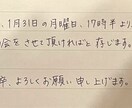 、1月31日の月曜日、17時半より
会をさせて頂ければと存じます。
卒、よろしくお願い申し上げます。